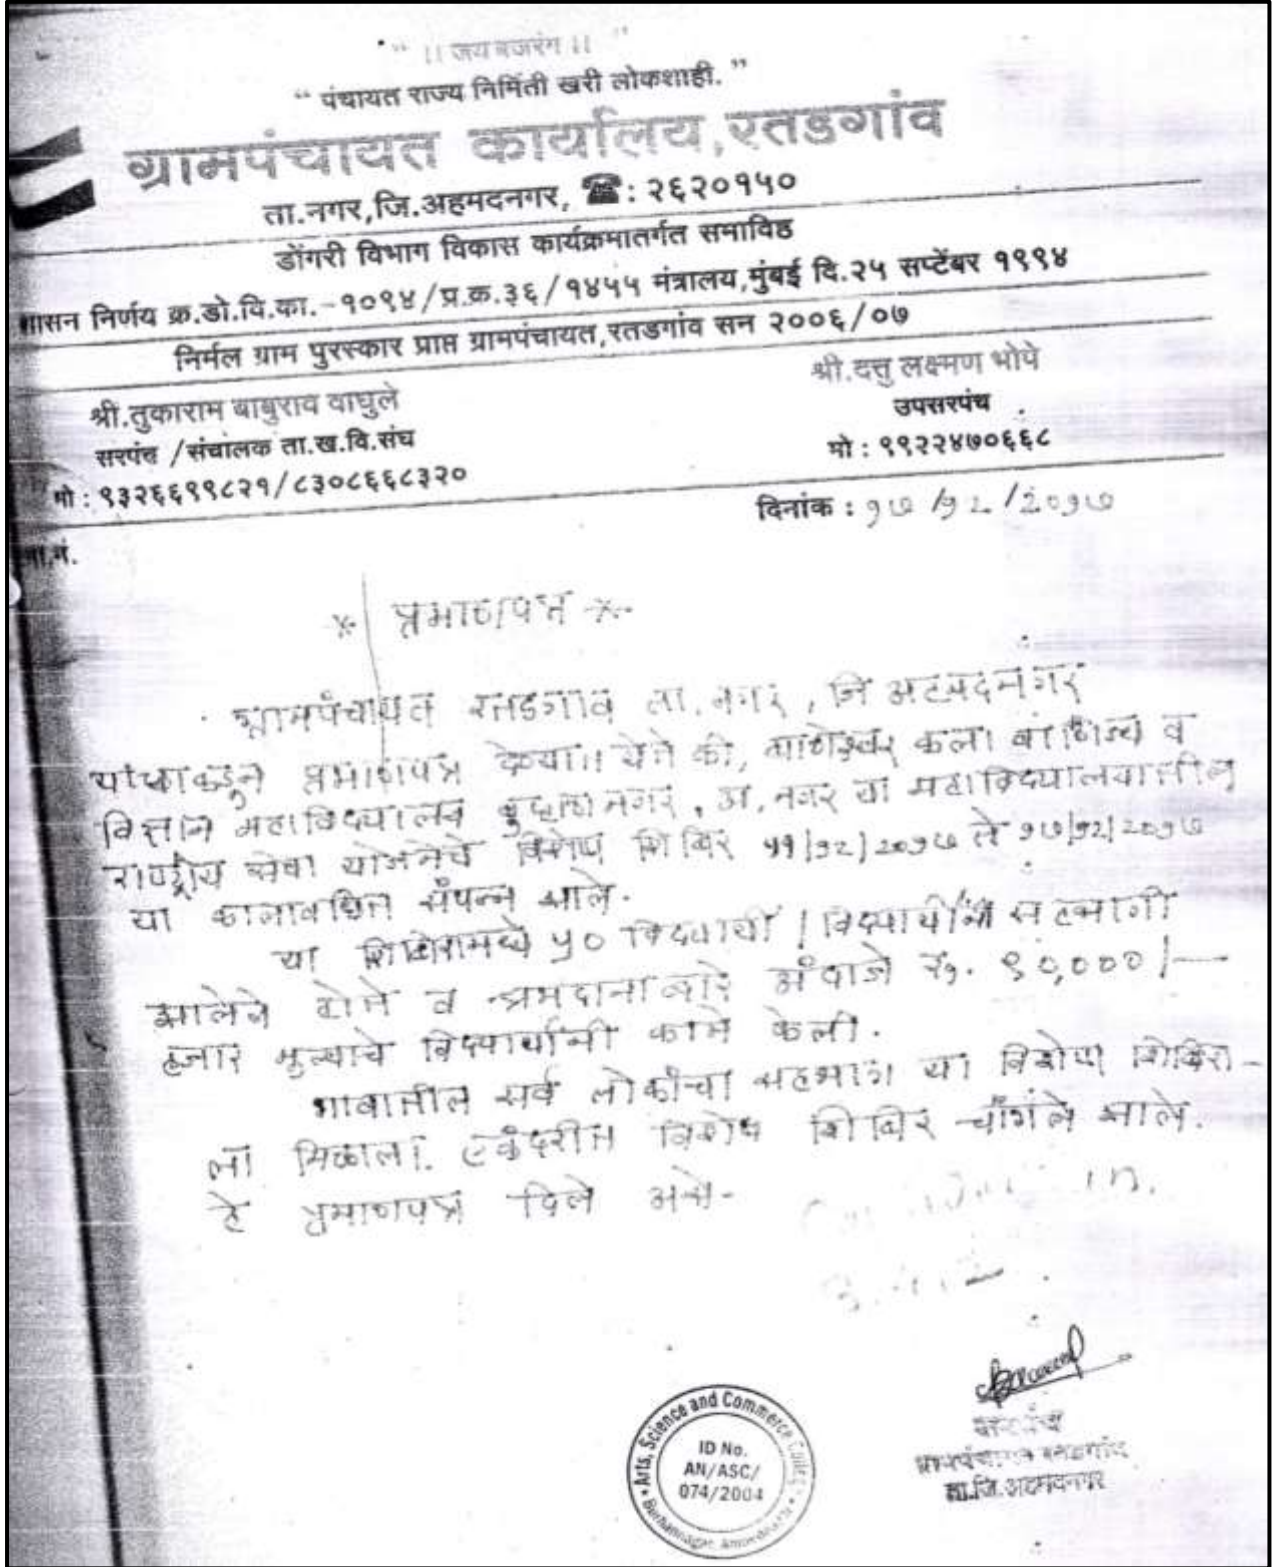 " ।। जय बजरंग ।। "
" पंचायत राज्य निर्मिती खरी लोकशाही. "
ग्रामपंचायत कार्यालय,रतडगांव
ता.नगर,जि.अहमदनगर, ☎: २६२०१५०
डोंगरी विभाग विकास कार्यक्रमातर्गत समाविष्ठ
शासन निर्णय क्र.डो.वि.का.-१०९४/प्र.क्र.३६/१४५५ मंत्रालय,मुंबई दि.२५ सप्टेंबर १९९४
निर्मल ग्राम पुरस्कार प्राप्त ग्रामपंचायत,रतडगांव सन २००६/०७
श्री.तुकाराम बाबुराव वाघुले
सरपंच /संचालक ता.ख.वि.संघ
मो : ९३२६६९९८२१/८३०८६६८३२०
श्री.दत्तु लक्ष्मण भोपे
उपसरपंच
मो : ९९२२४७०६६८
दिनांक : १७/१२/२०१७
जा.नं.
* प्रमाणपत्र *
ग्रामपंचायत रतडगाव ता. नगर, जि अहमदनगर
यांचाकडून प्रमाणपत्र देण्यात येते की, बाणेश्वर कला वाणिज्य व
विज्ञान महाविद्यालय बुऱ्हाणनगर, अ. नगर या महाविद्यालयातील
राष्ट्रीय सेवा योजनेचे विशेष शिबिर ११/१२/२०१७ ते १७/१२/२०१७
या कालावधित संपन्न झाले.
या शिबिरामध्ये ५० विद्यार्थी / विद्यार्थींनी सहभागी
झालेले होते व श्रमदानाद्वारे अंदाजे रु. ९०,०००/-
हजार मुल्याचे विद्यार्थांनी कामे केली.
गावातील सर्व लोकांचा सहभाग या विशेष शिबिरा-
ला मिळाला. एकंदरीत विशेष शिबिर चांगले झाले.
हे प्रमाणपत्र दिले असे-
सरपंच
ग्रामपंचायत रतडगांव
ता.जि.अहमदनगर
Arts, Science and Commerce College
ID No.
AN/ASC/
074/2004
Burhannagar, Ahmednagar